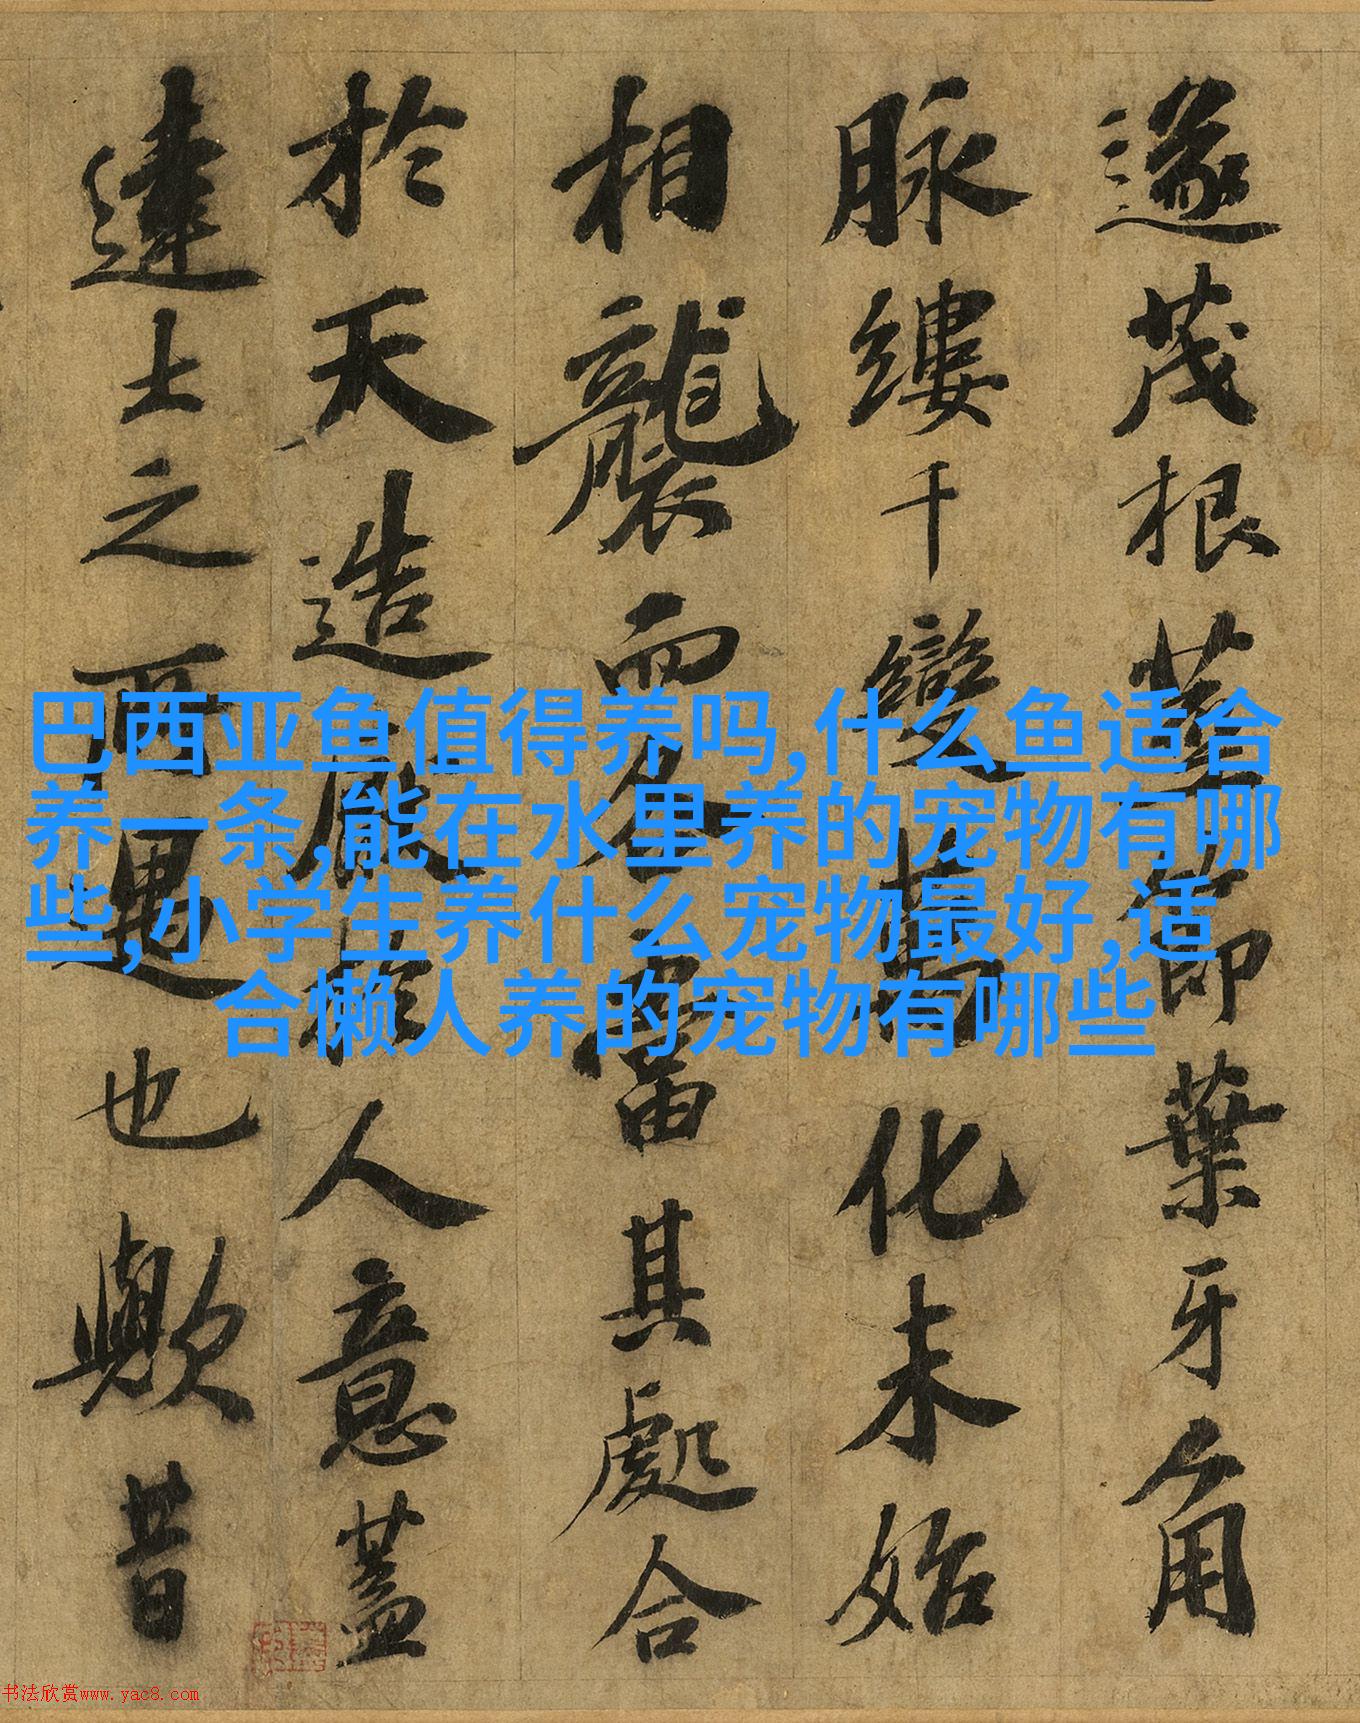 遂茂根莖節葉牙角
脉縷千變萬化未始
相襲而各當其處合
於天造厭於人意蓋
達士之所寓也歟昔
巴西亚鱼值得养吗,什么鱼适合
养一条,能在水里养的宠物有哪
些,小学生养什么宠物最好,适
合懒人养的宠物有哪些
书法欣赏www.yac8.com